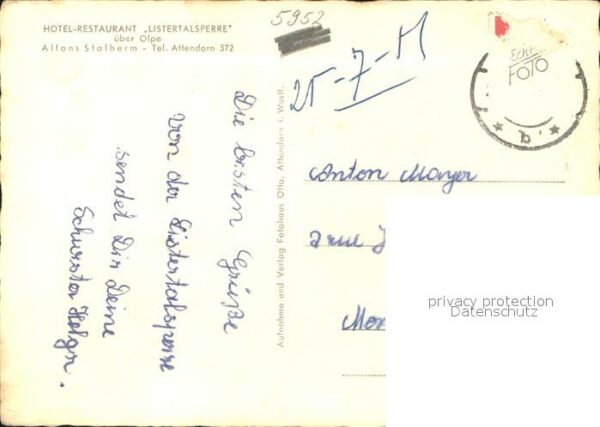 HOTEL-RESTAURANT „LISTERTALSPERRE"
über Olpe
Alfons Stalherm - Tel. Attendorn 372
5952
25-7-
Echt
FOTO
* b *
Die besten Grüße
von der Listertalsperre
sendet Dir Deine
Schwester Helga.
Aufnahme und Verlag Fotohaus Otto, Attendorn i. Westf.
Anton Mayer
privacy protection
Datenschutz